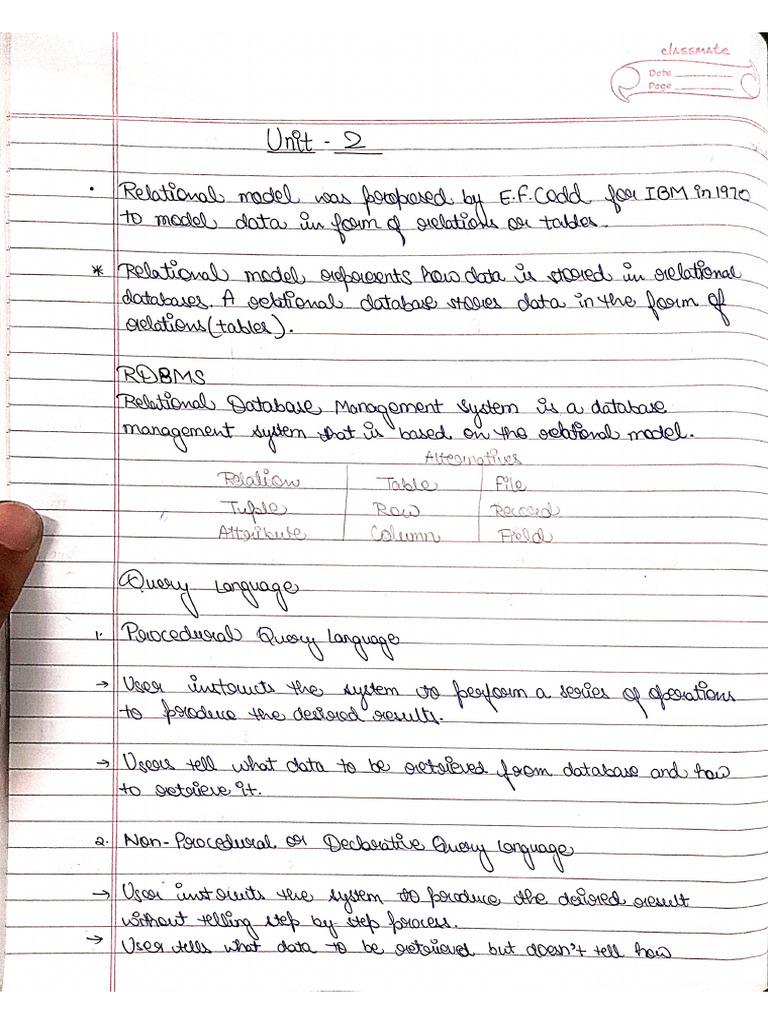 classmate
Date
Page
Unit - 2
• Relational model was proposed by E.F.Codd for IBM in 1970
to model data in form of relations or tables.
* Relational model represents how data is stored in relational
databases. A relational database stores data in the form of
relations (tables).
RDBMS
Relational Database Management System is a database
management system that is based on the relational model.
Alternatives
Relation Table File
Tuple Row Record
Attribute Column Field
Query Language
1. Procedural Query Language
→ User instructs the system to perform a series of operations
to produce the desired results.
→ Users tell what data to be retrieved from database and how
to retrieve it.
2. Non-Procedural or Declarative Query Language
→ User instructs the system to produce the desired result
without telling step by step process.
→ User tells what data to be retrieved but doesn't tell how